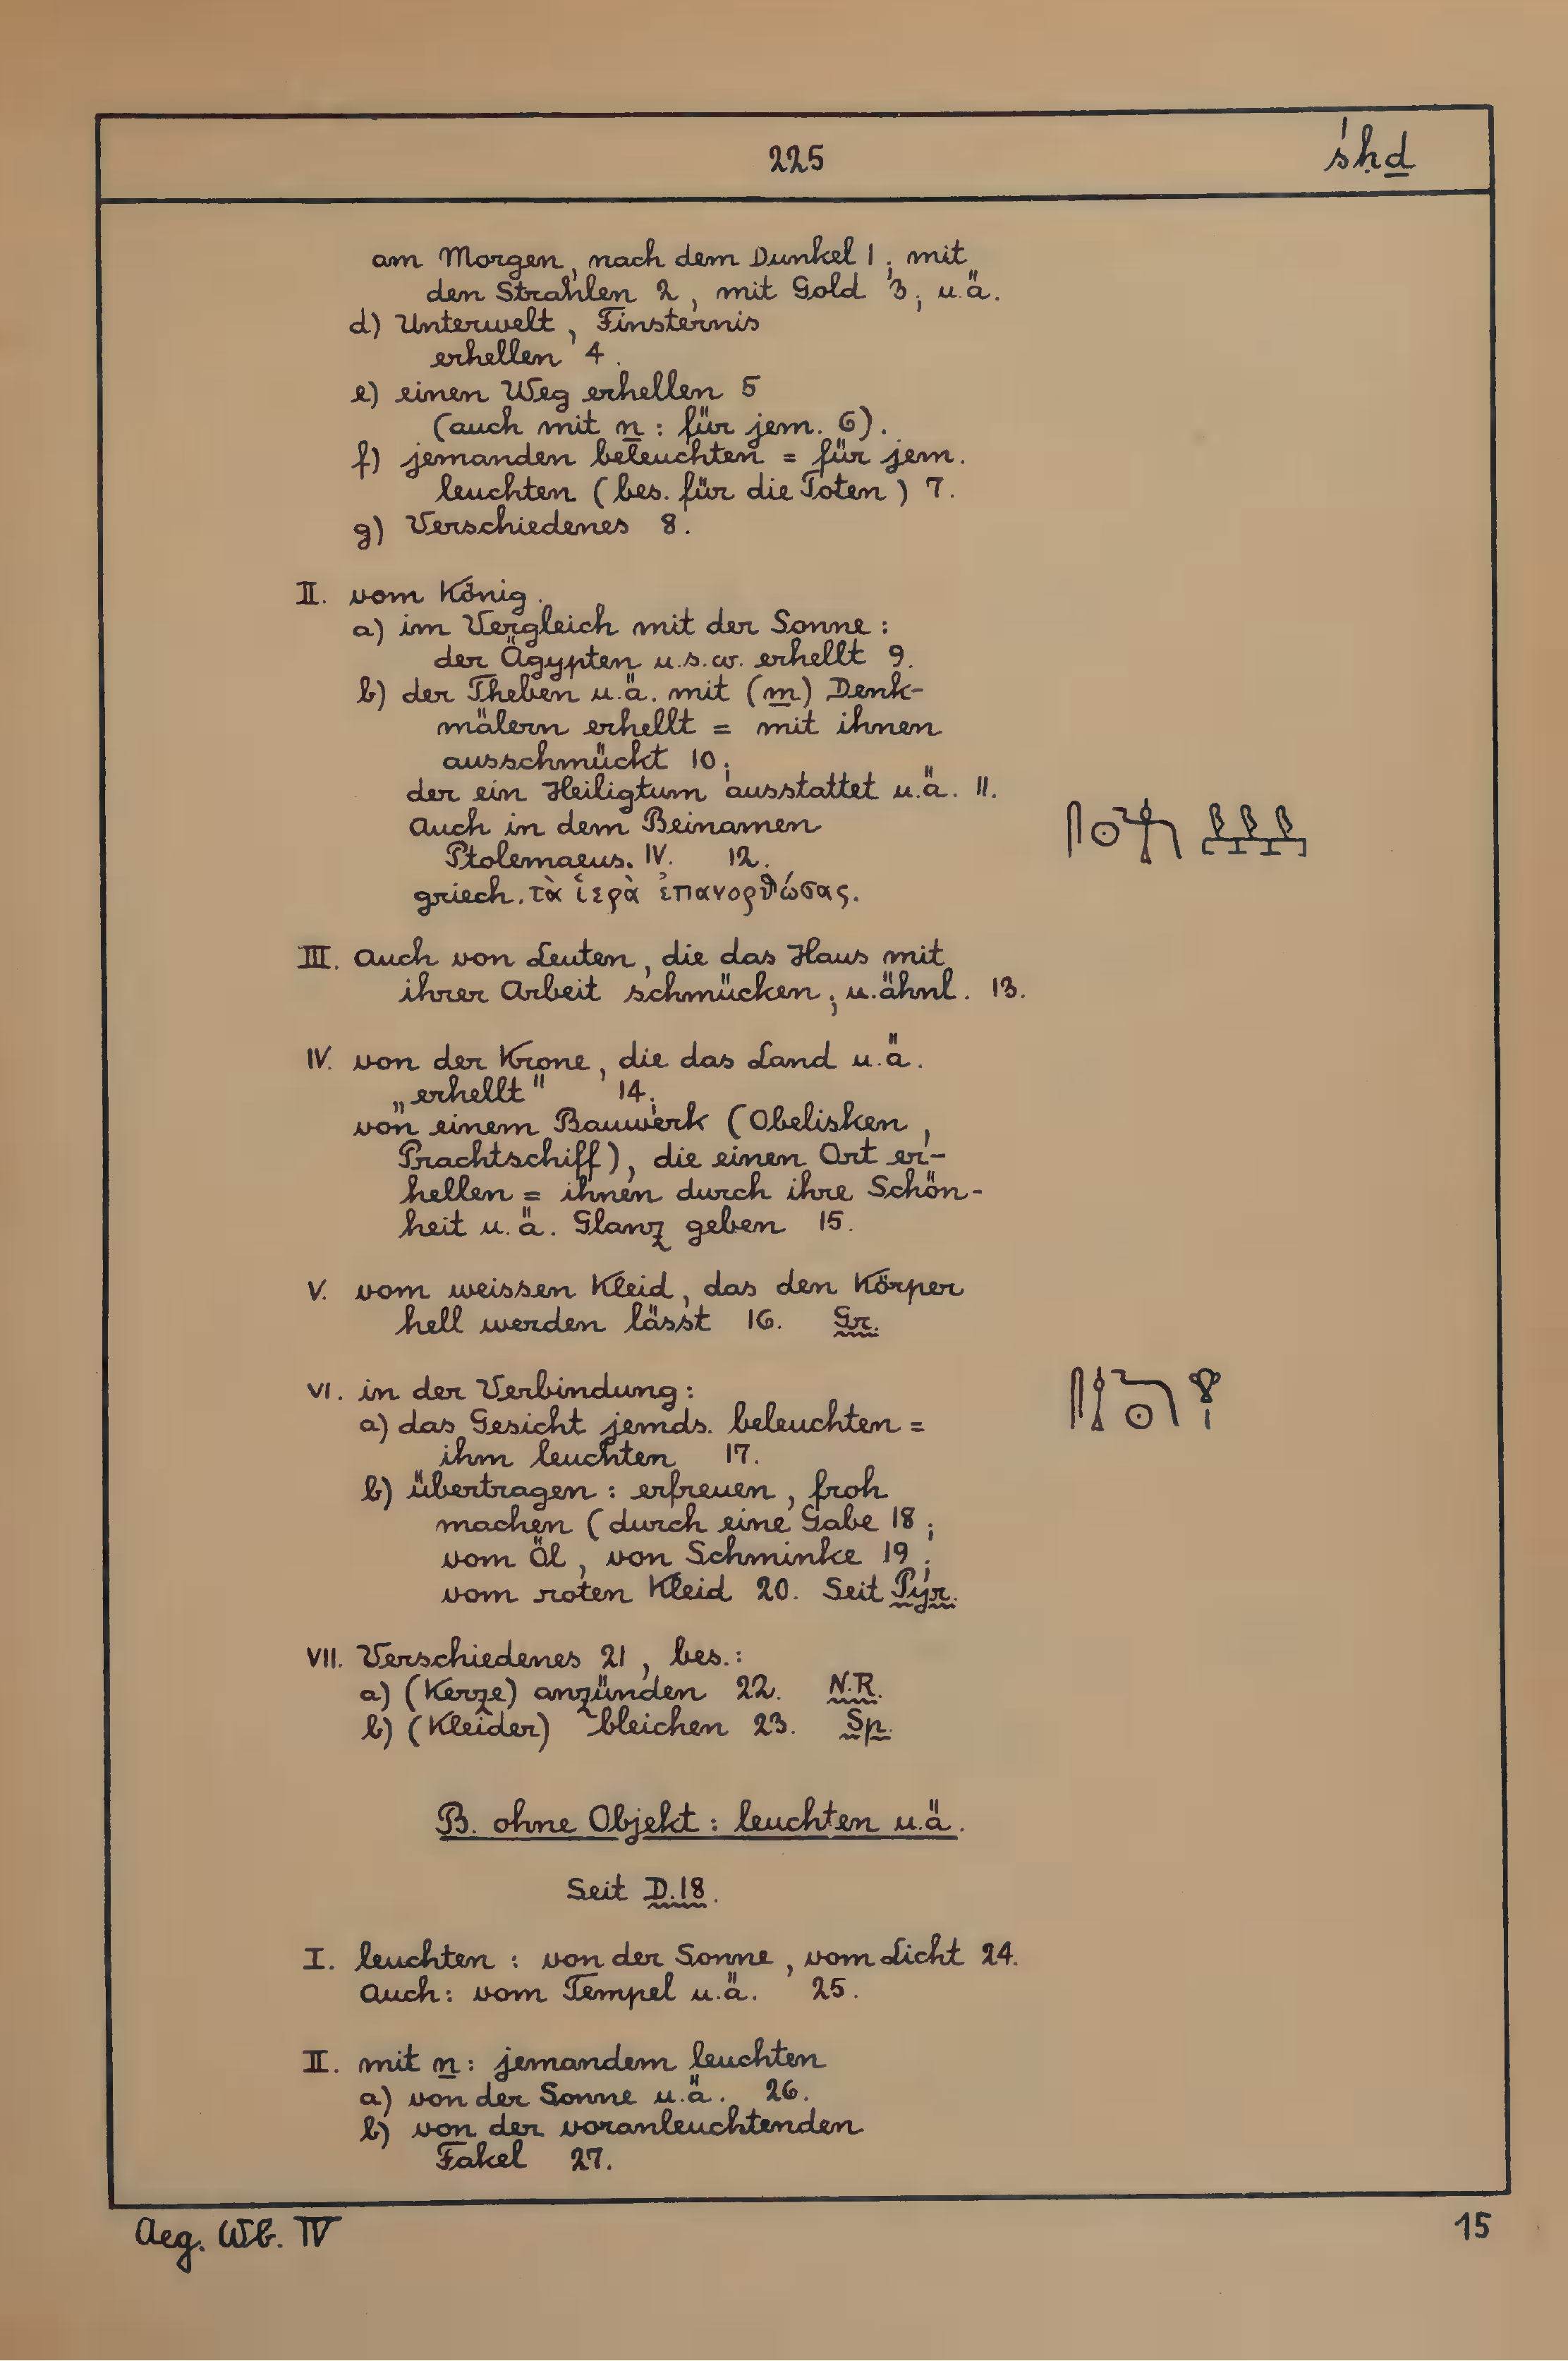 225 śḥḏ
am Morgen, nach dem Dunkel 1; mit
den Strahlen 2, mit Gold 3; u.ä.
d) Unterwelt, Finsternis
erhellen 4.
e) einen Weg erhellen 5
(auch mit n: für jem. 6).
f) jemanden beleuchten = für jem.
leuchten (bes. für die Toten) 7.
g) Verschiedenes 8.
II. vom König.
a) im Vergleich mit der Sonne:
der Ägypten u.s.w. erhellt 9.
b) der Theben u.ä. mit (m) Denk-
mälern erhellt = mit ihnen
ausschmückt 10;
der ein Heiligtum ausstattet u.ä. 11.
Auch in dem Beinamen
Ptolemaeus. IV. 12.
griech. τὰ ἱερὰ ἐπανορθώσας.
III. Auch von Leuten, die das Haus mit
ihrer Arbeit schmücken; u.ähnl. 13.
IV. von der Krone, die das Land u.ä.
„erhellt" 14;
von einem Bauwerk (Obelisken,
Prachtschiff), die einen Ort er-
hellen = ihnen durch ihre Schön-
heit u.ä. Glanz geben 15.
V. vom weissen Kleid, das den Körper
hell werden lässt 16. Gr.
VI. in der Verbindung:
a) das Gesicht jemds. beleuchten =
ihm leuchten 17.
b) übertragen: erfreuen, froh
machen (durch eine Gabe 18;
vom Öl, von Schminke 19;
vom roten Kleid 20. Seit Pyr.
VII. Verschiedenes 21, bes.:
a) (Kerze) anzünden 22. N.R.
b) (Kleider) bleichen 23. Sp.
B. ohne Objekt: leuchten u.ä.
Seit D.18.
I. leuchten: von der Sonne, vom Licht 24.
Auch: vom Tempel u.ä. 25.
II. mit n: jemandem leuchten
a) von der Sonne u.ä. 26.
b) von der voranleuchtenden
Fakel 27.
Aeg. Wb. IV 15